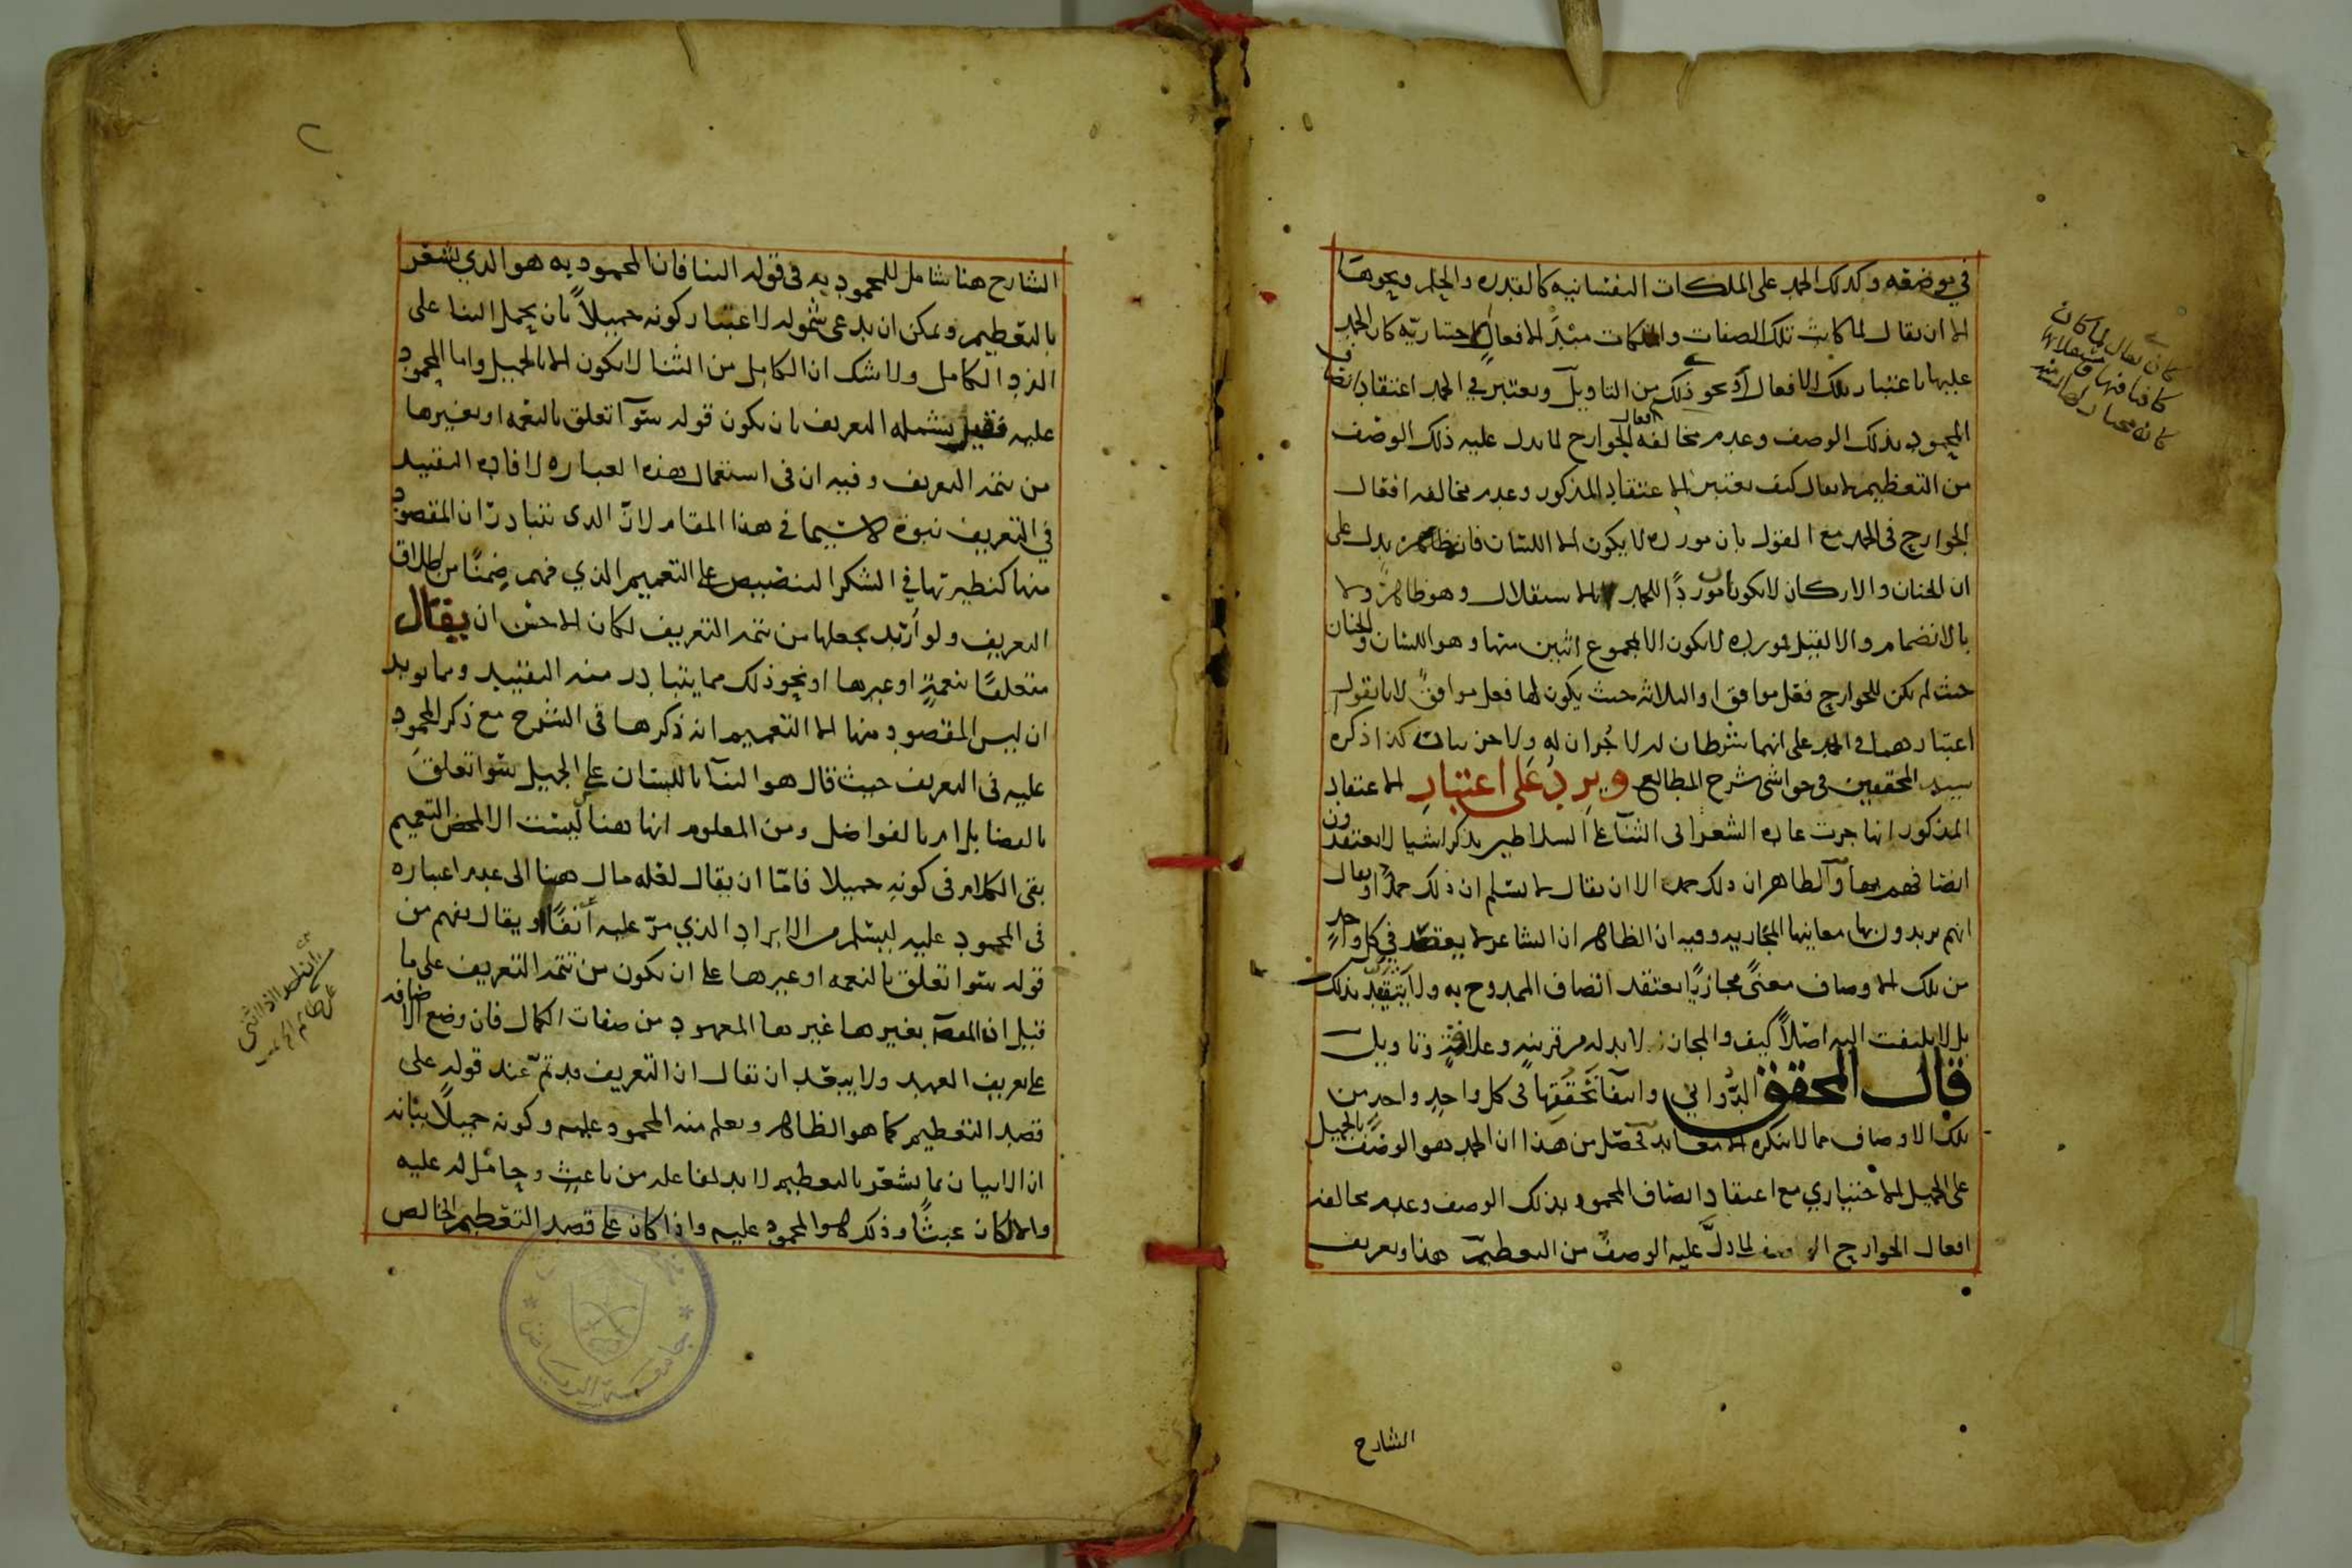 في موضعه وكذلك الحمد على الملكات النفسانيه كالقدره والحلم ونحوها
الا ان يقال لما كانت تلك الصفات والملكات مبدأ الافعال الاختياريه كان الحمد
عليها باعتبار تلك الافعال او نحو ذلك من التاويل ويعتبر في الحمد اعتقاد اتصاف
المحمود بذلك الوصف وعدم مخالفه افعال الجوارح لما يدل عليه ذلك الوصف
من التعظيم لا يقال كيف يعتبر الاعتقاد المذكور وعدم مخالفه افعال
الجوارح في الحمد مع القول بان مورده لا يكون الا اللسان فان ظاهره يدل على
ان الجنان والاركان لا يكونا موردًا للحمد لا بالاستقلال وهو ظاهر ولا
بالانضمام والا لقيل مورده لا يكون الا مجموع اثنين منها وهو اللسان والجنان
حيث لم يكن للجوارح فعل موافق او الثلاثه حيث يكون لها فعل موافق لانا نقول
اعتبارهما في الحمد على انهما شرطان له لا جزان له ولا جزييات كذا ذكره
سيد المحققين في حواشى شرح المطالع ويرد على اعتبار الاعتقاد
المذكور انها جرت عاده الشعرا في الثنآ على السلاطين بذكر اشيا لا يعتقدون
اتصافهم بها والظاهر ان ذلك حمد الا ان يقال لا نسلم ان ذلك حمدًا او يقال
انهم يريدون بها معانيها المجازيه وفيه ان الظاهر ان الشاعر لا يقصد في كل واحد
من تلك الاوصاف معنًى مجازيًا يعتقد اتصاف الممدوح به ولا يتقيد بذلك
بل لا يلتفت اليه اصلاً كيف والمجاز لا بد له من قرينه وعلاقة وتاويل
قال المحقق الدواني وانتفآ تحققها في كل واحد واحد من
تلك الاوصاف مما لا ينكره تحصّل من هذا ان الحمد هو الوصف بالجميل
على الجميل الاختياري مع اعتقاد اتصاف المحمود بذلك الوصف وعدم مخالفه
افعال الجوارح لما دلّ عليه الوصف من التعظيم هذا وتعريف
الشارح
الشارح هنا شامل للمحمود به في قوله الثنا فان المحمود به هو الذي يشعر
بالتعظيم ويمكن ان يدعى شموله لاعتبار كونه جميلاً بان يحمل الثنا على
الفرد الكامل ولا شك ان الكامل من الثنا لا يكون الا بالجميل واما المحمود
عليه فقيل يشمله التعريف بان يكون قوله سوآ تعلق بالنعمه او بغيرها
من تتمه التعريف وفيه ان في استعمال هذه العباره لافاده التقييد
في التعريف نبوة لا سيما في هذا المقام لانّ الذى يتبادر ان المقصود
منها كنظيرتها في الشكر التنصيص على التعميم الذي فهم ضمنًا من اطلاق
التعريف ولو أريد بجعلها من تتمه التعريف لكان الاحسن ان يقال
متعلقًا بنعمةٍ او غيرها او نحو ذلك مما يتبادر منه التقييد ومما يويد
ان ليس المقصود منها الا التعميم انه ذكرها في الشرح مع ذكر المحمود
عليه في التعريف حيث قال هو الثنآ باللسان على الجميل سوا تعلق
بالفضايل ام بالفواضل ومن المعلوم انها هنا ليست الا لمحض التعميم
بقى الكلام في كونه جميلا فامّا ان يقال لعله مال هنا الى عدم اعتباره
في المحمود عليه ليسلم من الايراد الذي مرّ عليه أنفًا او يقال يفهم من
قوله سوا تعلق بالنعمه او غيرها على ان يكون من تتمه التعريف على ما
قيل ان المعهود بغيرها غيرها المعهود من صفات الكمال فان وضع الاضافه
على تعريف العهد ولا يبعد ان يقال ان التعريف قد تمّ عند قوله على
قصد التعظيم كما هو الظاهر ويعلم منه المحمود عليه وكونه جميلاً بيانه
ان الاتيان بما يشعر بالتعظيم لا بد لفاعله من باعث وحامل له عليه
والا لكان عبثًا وذلك هو المحمود عليه واذا كان على قصد التعظيم الخالص
جامعة الرياض